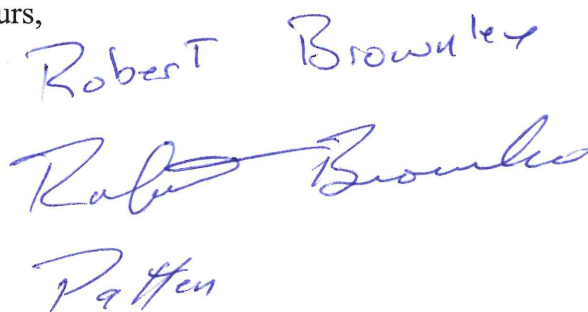 urs,
Robert Brownley
Robert Brownlee
Patten